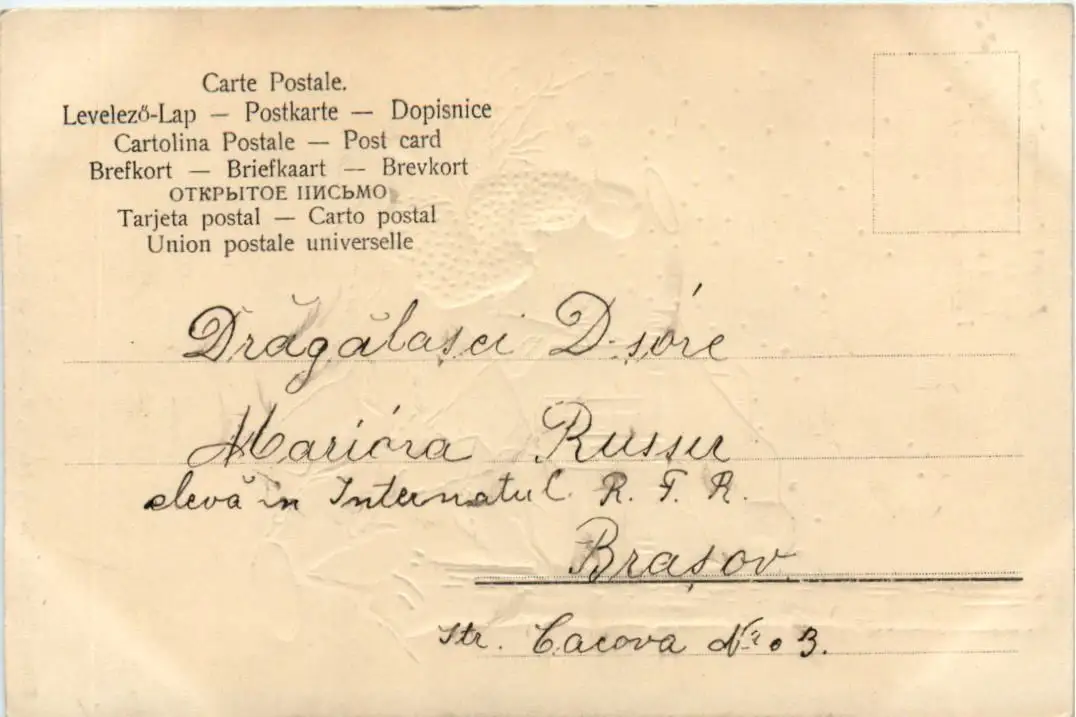 Carte Postale.
Levelező-Lap — Postkarte — Dopisnice
Cartolina Postale — Post card
Brefkort — Briefkaart — Brevkort
ОТКРЫТОЕ ПИСЬМО
Tarjeta postal — Carto postal
Union postale universelle
Drăgălașei D-șóre
Marióra Russu
elevă în Internatul R. F. R.
Brașov
Str. Cacova Nr. 3.